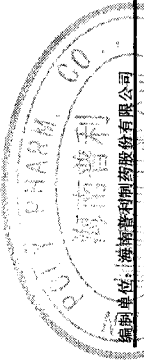 POLY PHARM. CO.
海南普利
编制单位：海南普利制药股份有限公司